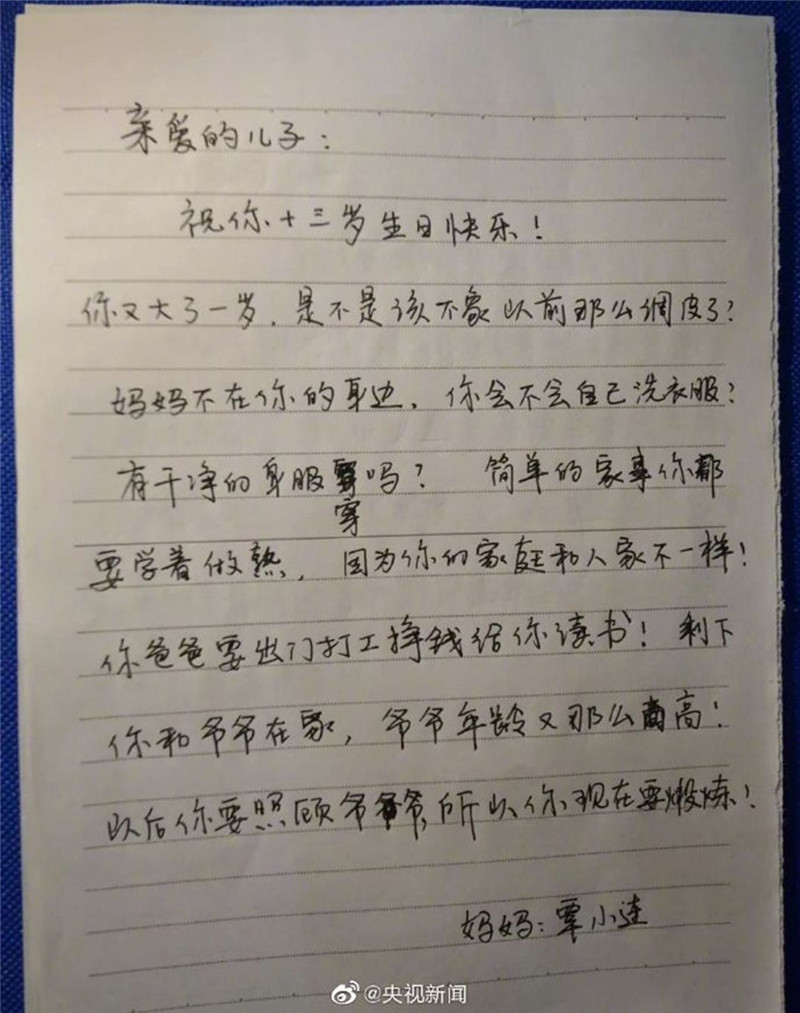 亲爱的儿子：
祝你十三岁生日快乐！
你又大了一岁，是不是该不象以前那么调皮了？
妈妈不在你的身边，你会不会自己洗衣服？
有干净的身服吗？ 简单的家事你都
穿
要学着做熟，因为你的家庭和人家不一样！
你爸爸要出门打工挣钱给你读书！剩下
你和爷爷在家，爷爷年龄又那么高！
以后你要照顾爷爷，所以你现在要煅炼！
妈妈：覃小连
@央视新闻